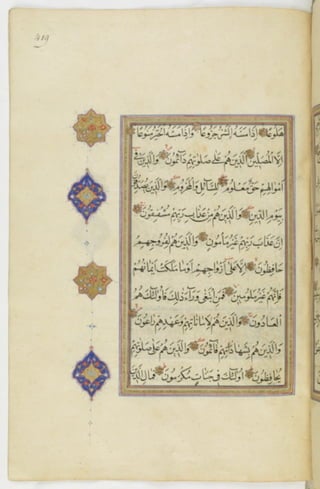 419
هلوعا اذا مسه الشر جزوعا واذا مسه الخير منوعا
الا المصلين الذين هم على صلوتهم دآئمون والذين فى
اموالهم حق معلوم للسائل والمحروم والذين يصدقون
بيوم الدين والذين هم من عذاب ربهم مشفقون
ان عذاب ربهم غير مأمون والذين هم لفروجهم
حافظون الا على ازواجهم او ما ملكت ايمانهم
فانهم غير ملومين فمن ابتغى ورآء ذلك فاولئك هم
العادون والذين هم لاماناتهم وعهدهم راعون
والذين هم بشهاداتهم قائمون والذين هم على صلوتهم
يحافظون اولئك فى جنات مكرمون فمال الذين